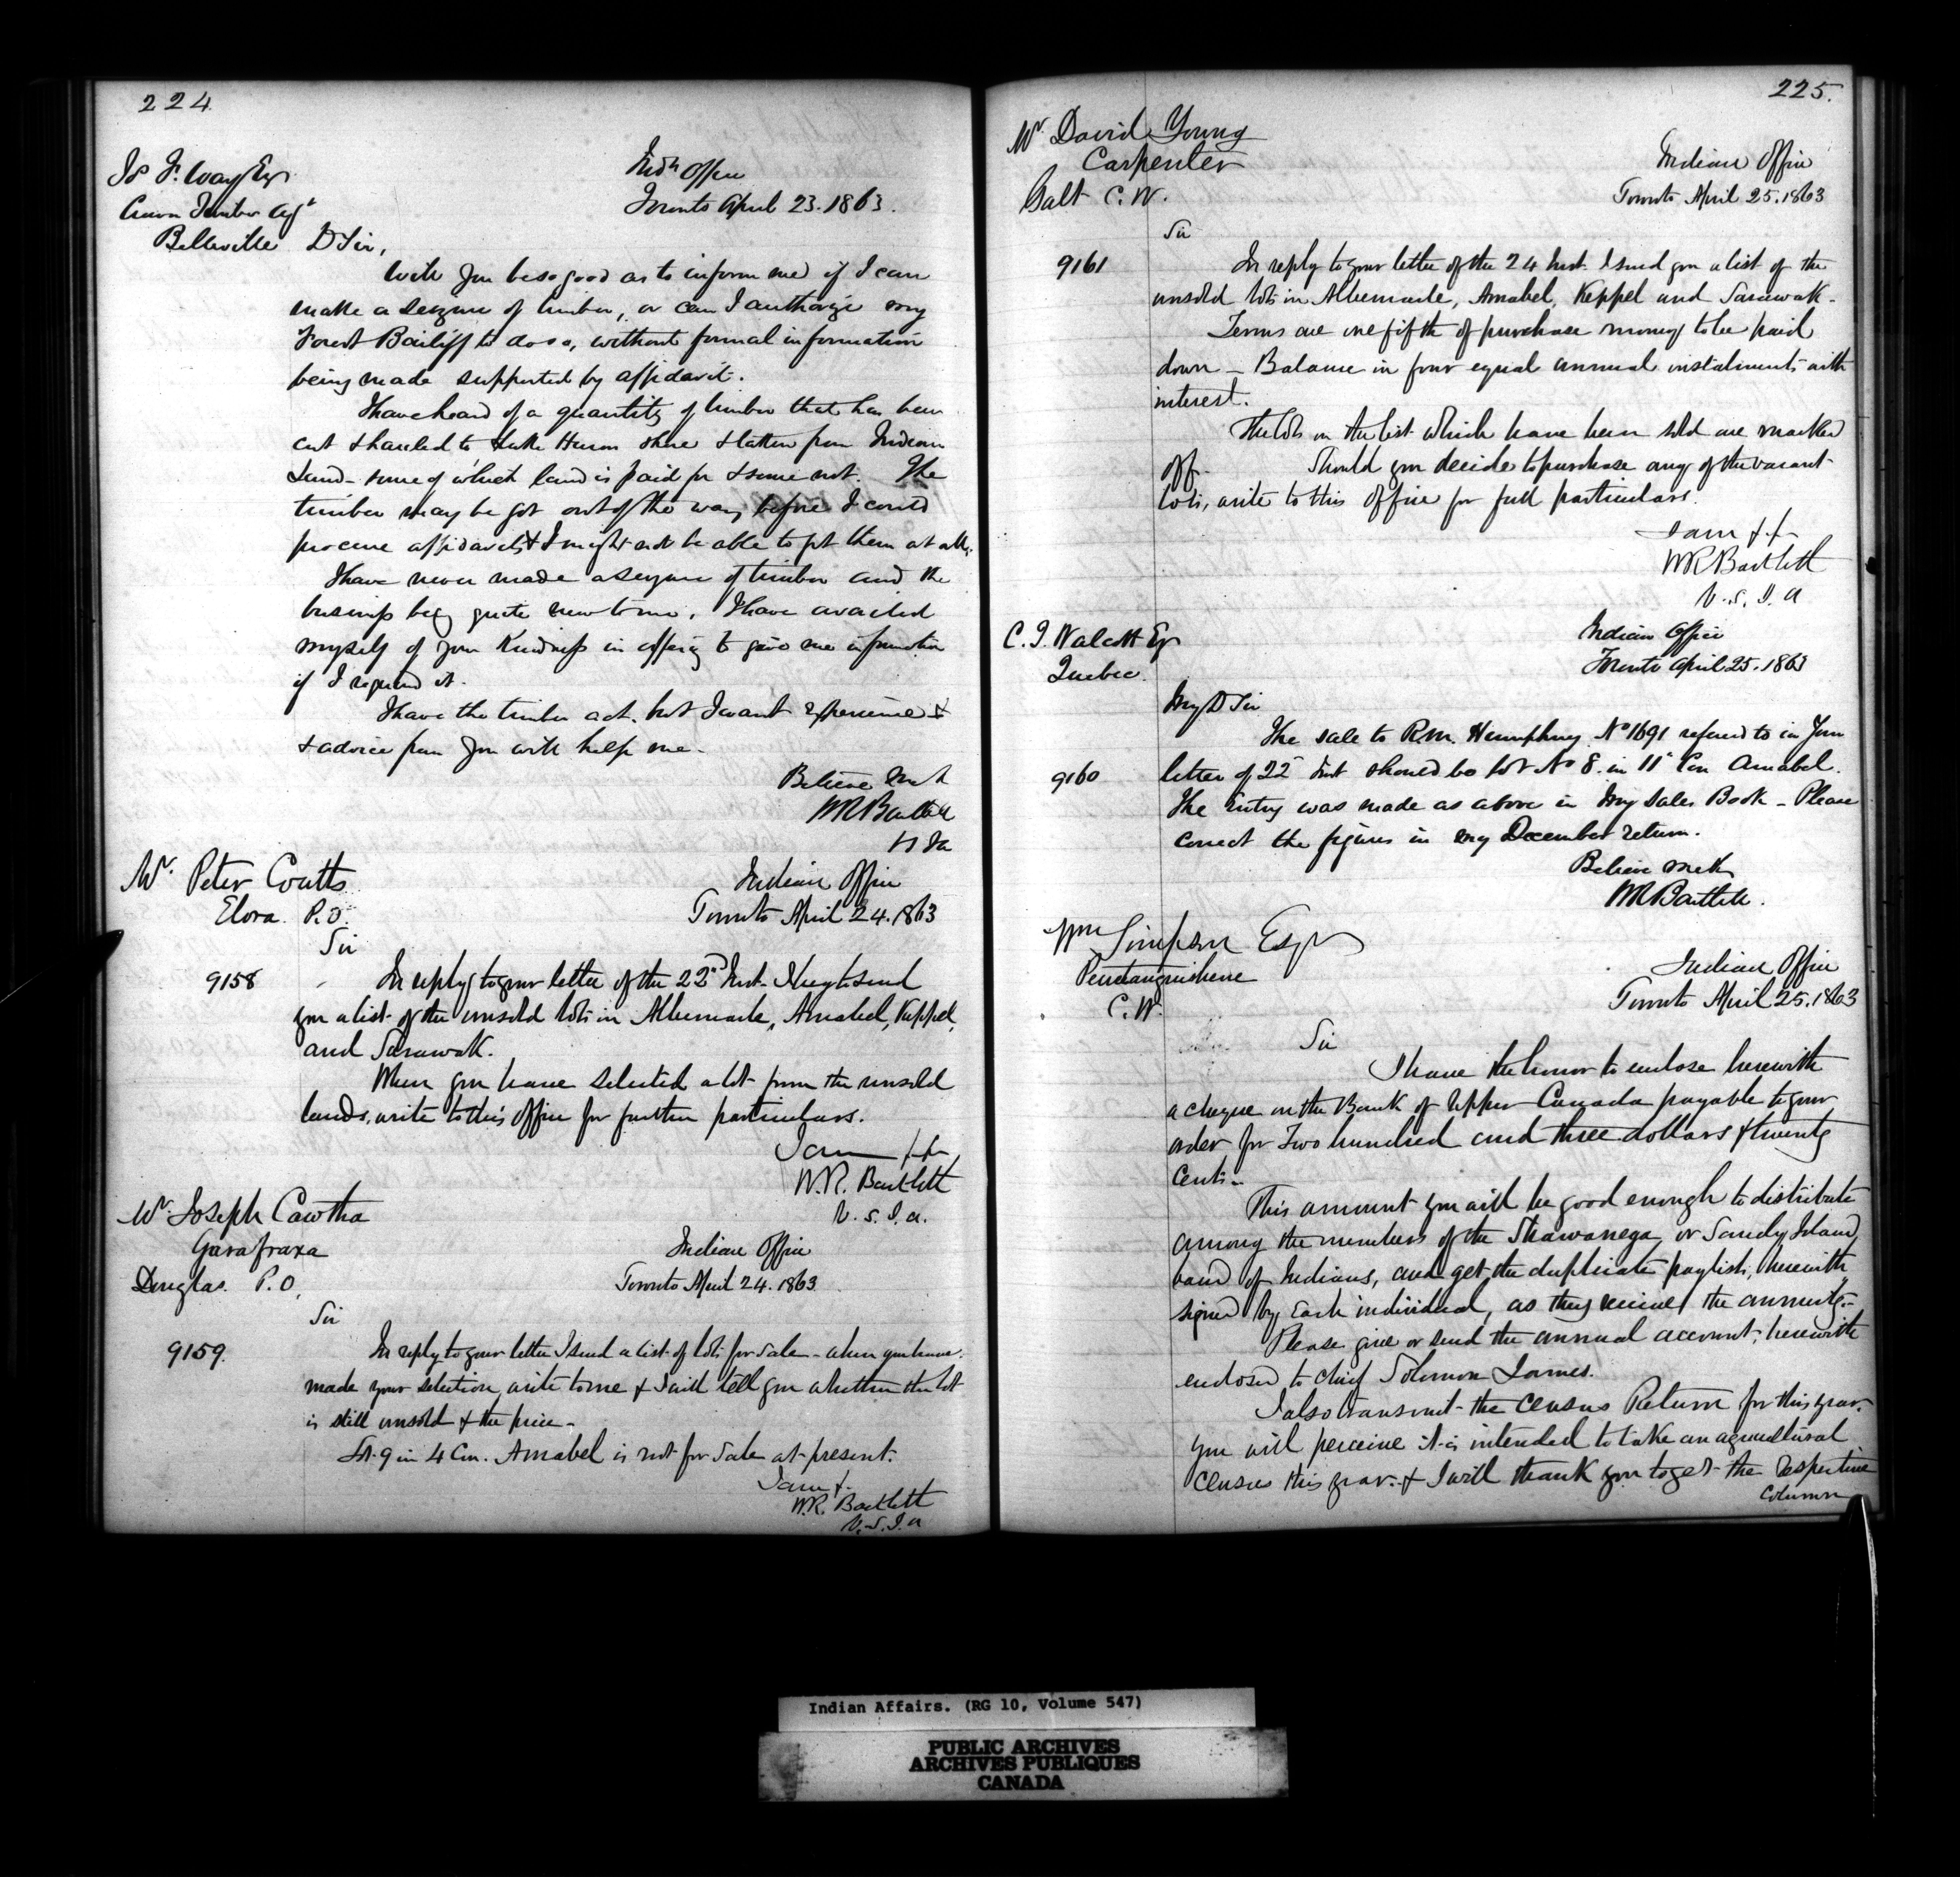 224
Js F. Way Esq
Crown Timber Agt
Belleville
Indn Office
Toronto April 23. 1863.
D Sir,
Will you be so good as to inform me if I can
make a seizure of timber, or can I authorize my
Forest Bailiff to do so, without formal information
being made supported by affidavit.
I have heard of a quantity of timber that has been
cut & hauled to Lake Huron shore & taken from Indian
Land - some of which land is paid for & some not. The
timber may be got out of the way before I could
procure affidavits & I might not be able to get them at all.
I have never made a seizure of timber and the
business beg quite new to me, I have availed
myself of your kindness in offering to give me information
if I required it.
I have the timber act. but I want experience &
& advice from you will help me -
Believe me &
WR Bartlett
Mr. Peter Coutts
Elora P.O.
Indian Office
Toronto April 24. 1863
Sir
9158
In reply to your letter of the 22nd Inst. I beg to send
you a list of the unsold lots in Albemarle, Amabel, Keppel,
and Sarawak.
When you have selected a lot from the unsold
lands, write to this office for further particulars.
I am &c
W.R. Bartlett
V. S. I. A.
Mr. Joseph Cawtha
Garafraxa
Douglas P.O.
Indian Office
Toronto April 24. 1863
Sir
9159.
In reply to your letter I send a list of lots for sale - when you have
made your selection, write to me & I will tell you whether the lot
is still unsold & the price -
Lot 9 in 4 Con. Amabel is not for sale at present.
I am &.
W.R. Bartlett
V. S. I. A
225.
Mr. David Young
Carpenter
Galt C.W.
Indian Office
Toronto April 25. 1863
Sir
9161
In reply to your letter of the 24 Inst. I send you a list of the
unsold lots in Albemarle, Amabel, Keppel and Sarawak -
Terms are one fifth of purchase money to be paid
down - Balance in four equal annual instalments with
interest.
The lots on the list which have been sold are marked
off. Should you decide to purchase any of the vacant
lots, write to this office for full particulars.
I am &c
WR Bartlett
V. S. I. A
C. T. Walcott Esq
Quebec
Indian Office
Toronto April 25. 1863
My D Sir
9160
The sale to R.M. Humphrey No 1691 referred to in your
letter of 22d Inst should be lot No 8. in 11th Con Amabel.
The Entry was made as above in my Sales Book - Please
correct the figures in my December return.
Believe me &c
WR Bartlett.
Wm Simpson Esqr
Penetanguishene
C.W.
Indian Office
Toronto April 25. 1863
Sir
I have the honor to enclose herewith
a cheque on the Bank of Upper Canada payable to your
order for Two hundred and three dollars & twenty
cents -
This amount you will be good enough to distribute
among the members of the Shawanega, or Sandy Island,
band of Indians, and get the duplicate paylists, herewith
signed by each individual, as they receive the annuity. -
Please give or send the annual account, herewith
enclosed to Chief Solomon James.
I also transmit the Census Return for this year.
you will perceive it is intended to take an agricultural
census this year. & I will thank you to get the respective
column
Indian Affairs. (RG 10, Volume 547)
PUBLIC ARCHIVES
ARCHIVES PUBLIQUES
CANADA